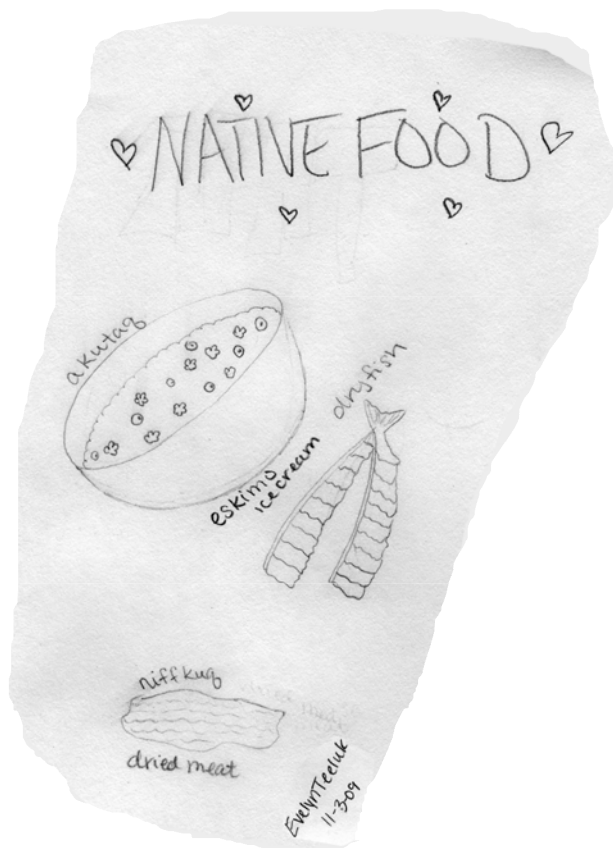 NATIVE FOOD
akutaq
eskimo
ice cream
dryfish
niffkuq
dried meat
Evelyn Teeluk
11-3-09